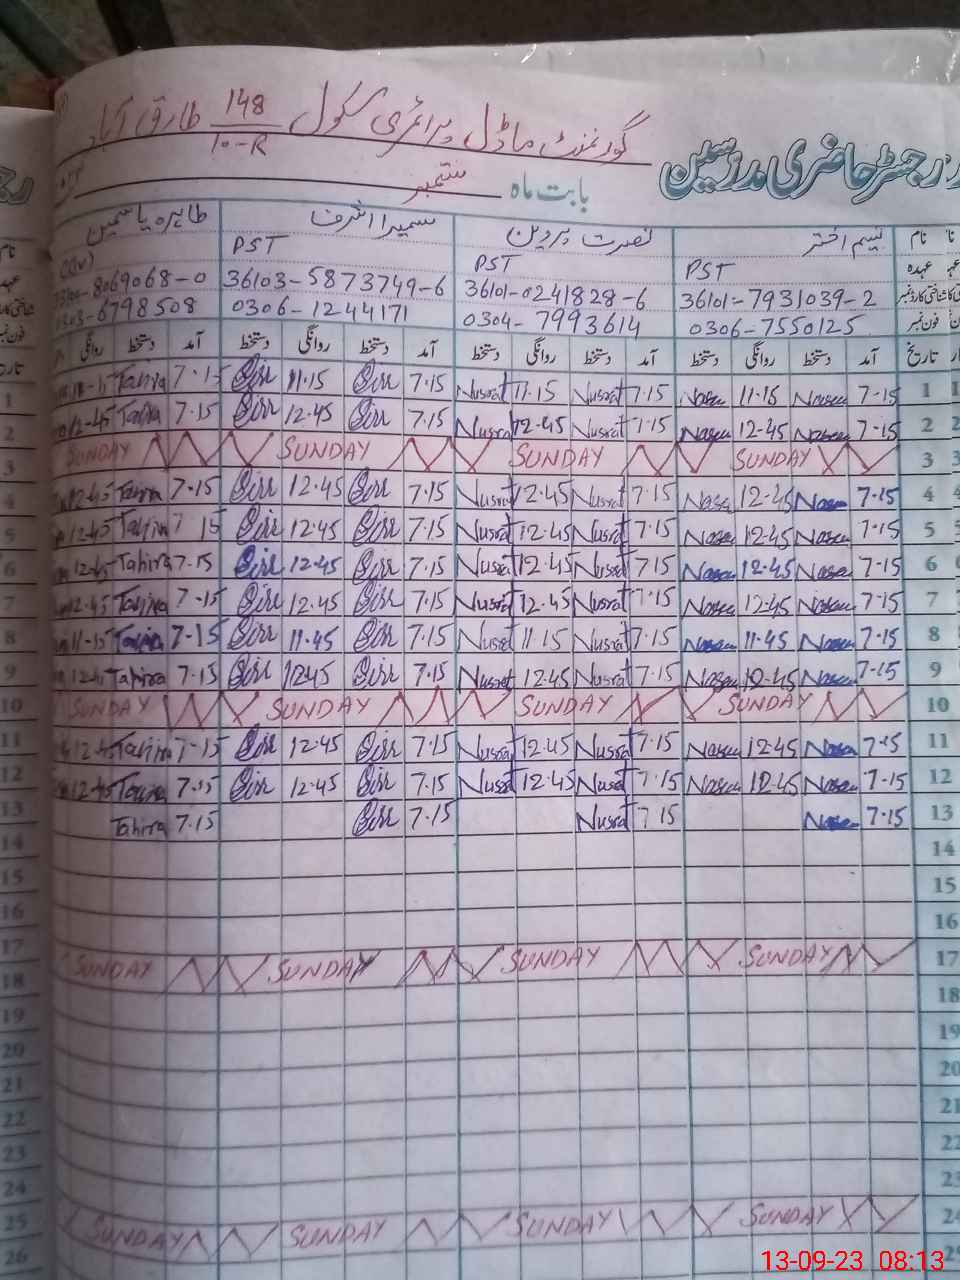 گورنمنٹ ماڈل پرائمری سکول 148/10-R طارق آباد
رجسٹر حاضری مدرسین
بابت ماہ ستمبر
نام نسیم اختر نصرت پروین سمیرا اشرف طاہرہ یاسمین
عہدہ PST PST PST
شناختی کارڈ نمبر 36101-7931039-2 36101-0241828-6 36103-5873749-6 8069068-0
فون نمبر 0306-7550125 0304-7993614 0306-1244171 0303-6798508
تاریخ آمد دستخط روانگی دستخط آمد دستخط روانگی دستخط آمد دستخط روانگی دستخط آمد دستخط روانگی
1 7-15 Naseem 11-15 Naseem 7.15 Nusrat 11.15 Nusrat 7.15 11.15 7.15 Tahira
2 7-15 Naseem 12-45 Naseem 7.15 Nusrat 12.45 Nusrat 7.15 12.45 7.15 Tahira 12-45
3 SUNDAY SUNDAY SUNDAY SUNDAY
4 7-15 12-45 7.15 Nusrat 12.45 Nusrat 7.15 12.45 7.15 Tahira 12-45
5 7-15 12-45 7.15 Nusrat 12.45 Nusrat 7.15 12.45 7 15 Tahira 12-45
6 7-15 12-45 7.15 Nusrat 12.45 Nusrat 7.15 12.45 7.15 Tahira 12-45
7 7-15 12-45 7.15 Nusrat 12.45 Nusrat 7.15 12.45 7-15 Tahira 12.45
8 7-15 11-45 7.15 Nusrat 11.15 Nusrat 7.15 11.45 7-15 Tahira 11-15
9 7-15 12-45 7.15 Nusrat 12.45 Nusrat 7.15 12.45 7.15 Tahira
10 SUNDAY SUNDAY SUNDAY SUNDAY
11 7-15 12-45 7.15 Nusrat 12.45 Nusrat 7.15 12.45 7-15 Tahira 12-45
12 7-15 12-45 7.15 Nusrat 12.45 Nusrat 7.15 12.45 7.15 Tahira 12-45
13 7-15 7 15 Nusrat 7.15 7.15 Tahira
14
15
16
17 SUNDAY SUNDAY SUNDAY SUNDAY
18
19
20
21
22
23
24 SUNDAY SUNDAY SUNDAY SUNDAY
13-09-23 08:13